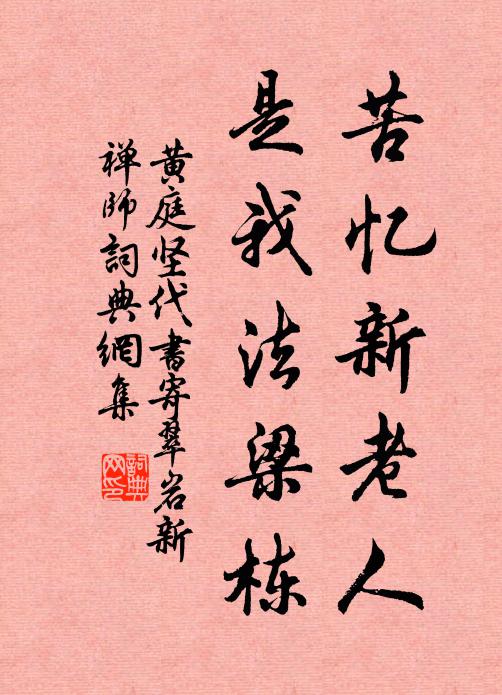 苦忆新老人
是我法梁栋
黄庭坚代书寄翠岩新
禅师詞典網集
詞典网印